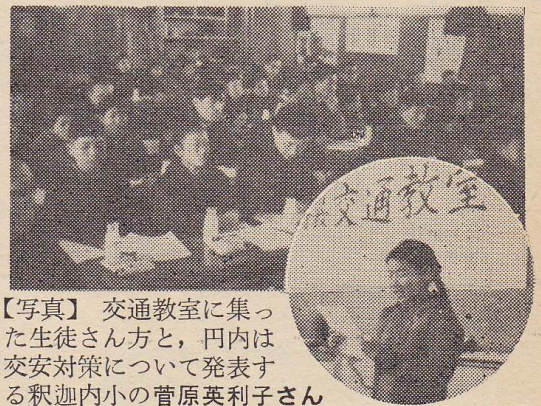 交通教室
【写真】 交通教室に集っ
た生徒さん方と，円内は
交安対策について発表す
る釈迦内小の菅原英利子さん